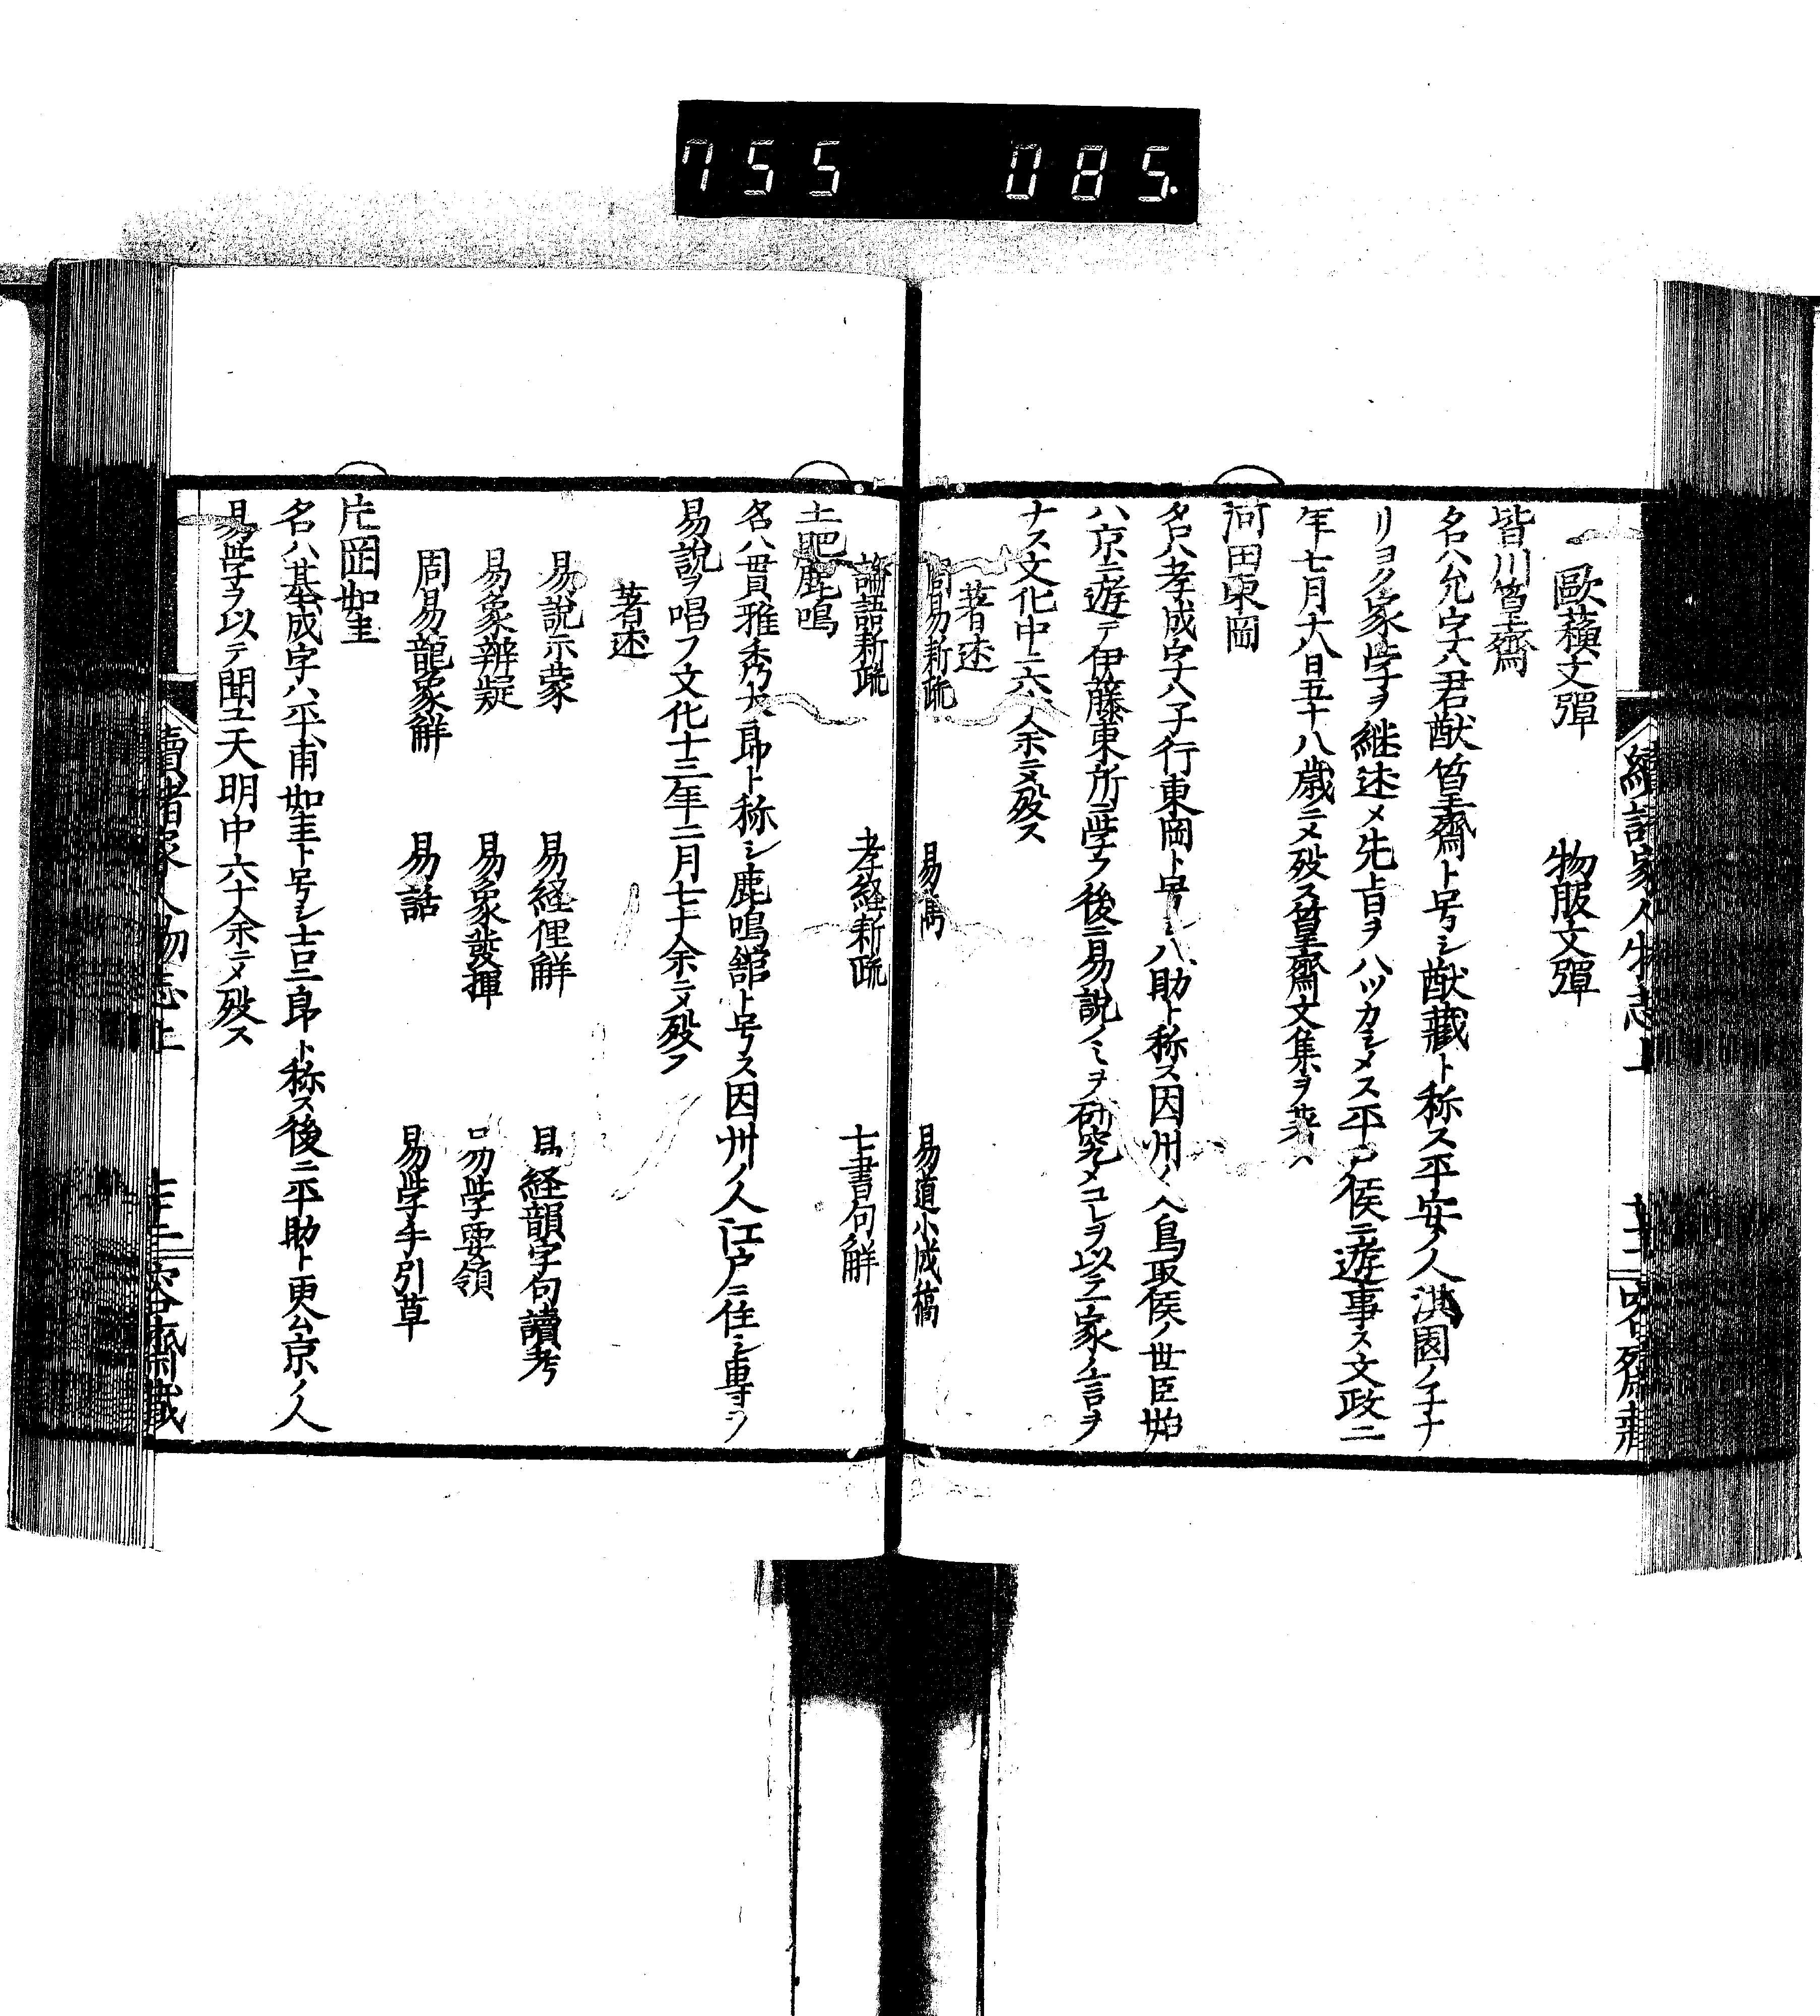 755 085
歐蘓文彈　物服文彈
皆川篁齋
名ハ允字ハ君猷篁齋ト号シ猷藏ト称ス平安ノ人淇園ノ子ナ
リヨク家学ヲ継述メ先旨ヲハツカシメス平戸侯ニ遊事ス文政二
年七月十八日五十八歳ニメ殁ス篁齋文集ヲ著ハ
河田東岡
名ハ孝成字ハ子行東岡ト号シ八助ト称ス因州ノ人鳥取侯ノ世臣始
ハ京ニ遊テ伊藤東所ニ学フ後ニ易説ノミヲ研究メコレヲ以テ一家ノ言ヲ
ナス文化中ニ六十余ニメ殁ス
著述
周易新疏　易　易道小成稿
論語新疏　孝経新疏　七書句解
土肥鹿鳴
名ハ貫雅秀太郎ト称シ鹿鳴舘ト号ス因州ノ人江戸ニ住シ専ラ
易説ヲ唱フ文化十三年二月七十余ニメ殁ス
著述
易説示蒙　易経俚解　易経韻字句讀考
易象辨疑　易象發揮　易学要領
周易龍象解　易話　易学手引草
片岡如圭
名ハ基成字ハ平甫如圭ト号シ吉二郎ト称ス後ニ平助ト更ム京ノ人
易学ヲ以テ聞エ天明中六十余ニメ殁ス
續諸家人物志上